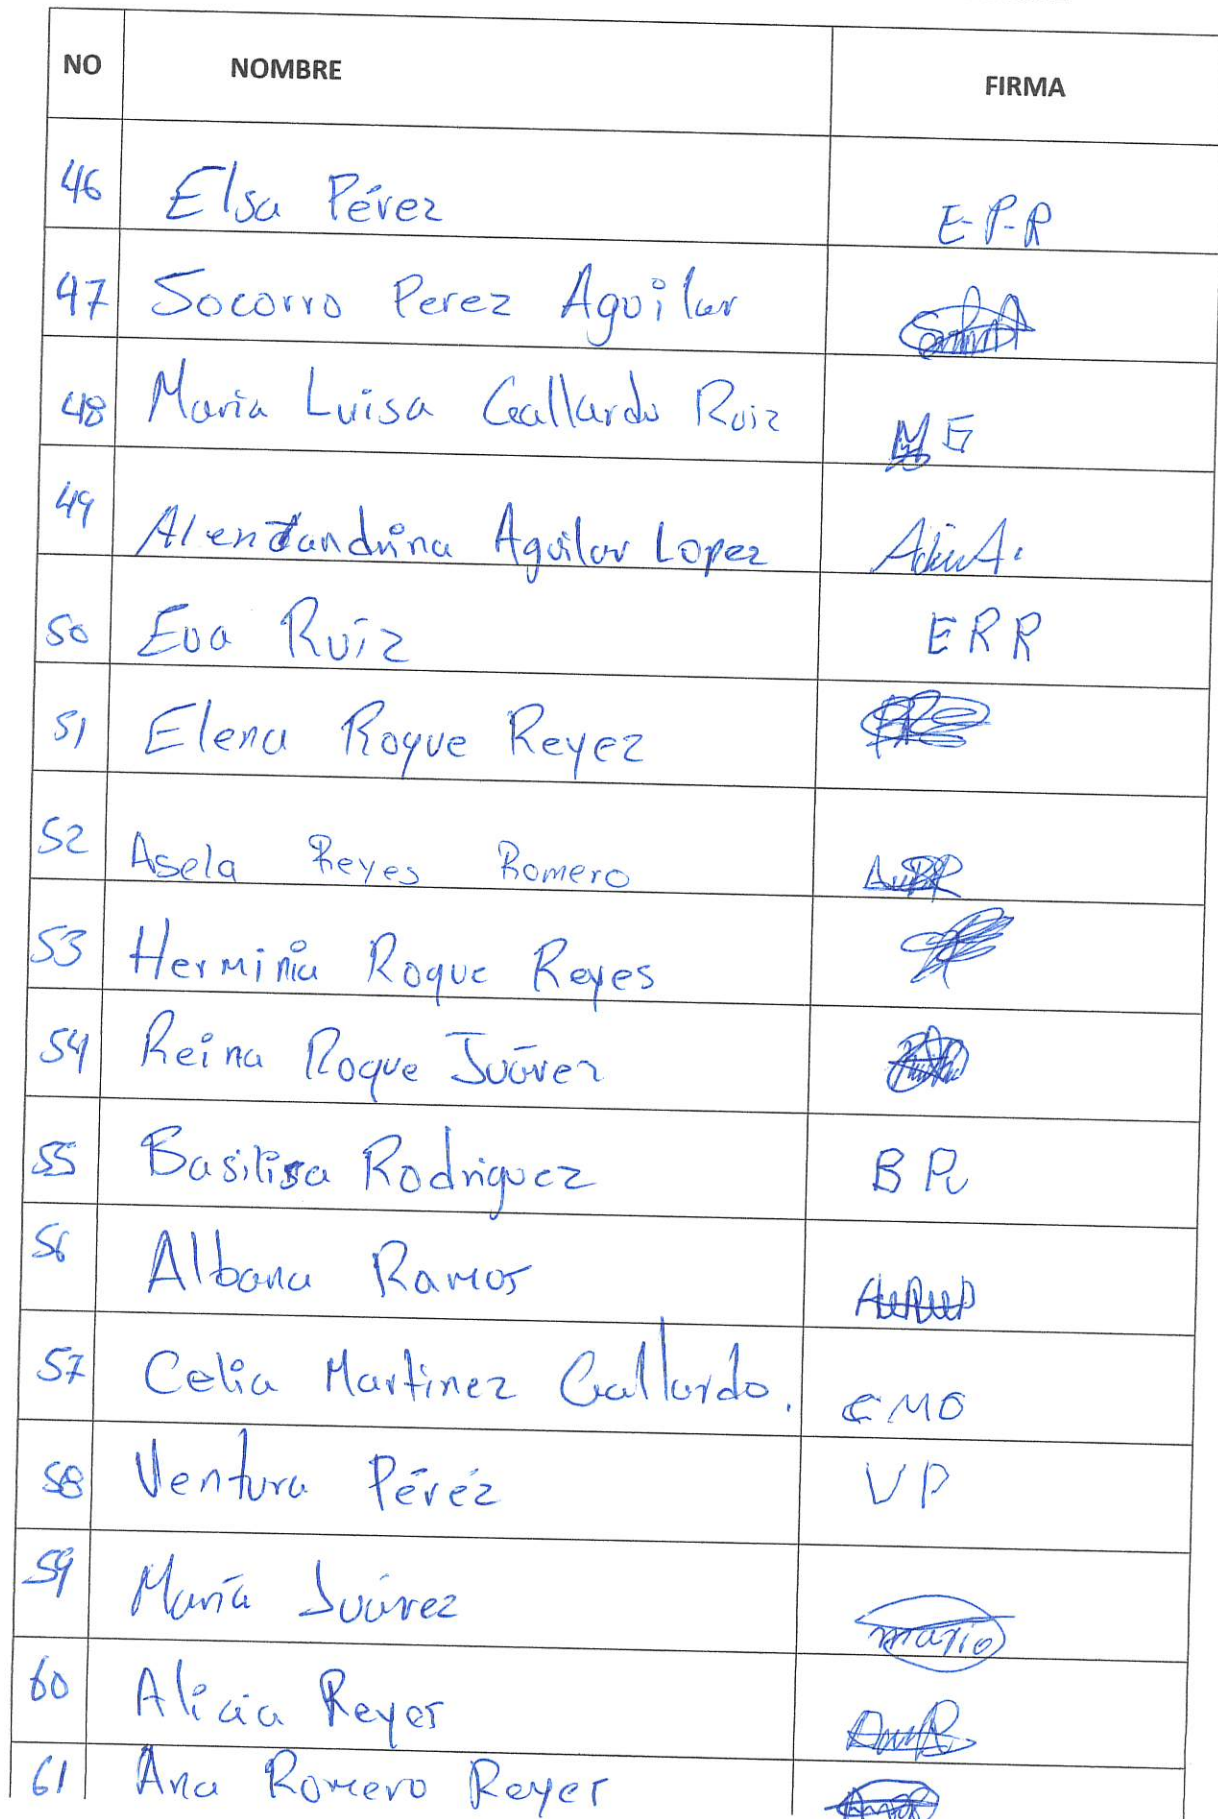 NO NOMBRE FIRMA
46 Elsa Pérez E-P-R
47 Socorro Perez Aguilar
48 Maria Luisa Gallardo Ruiz M G
49 Alendandrina Aguilar Lopez
50 Eva Ruíz E R R
51 Elena Roque Reyez
52 Asela Reyes Romero
53 Herminia Roque Reyes
54 Reina Roque Juárez
55 Basilisa Rodriguez B R
56 Albana Ramos
57 Celia Martinez Gallardo. CMO
58 Ventura Pérez V P
59 María Juárez maria
60 Alicia Reyes
61 Ana Romero Reyes